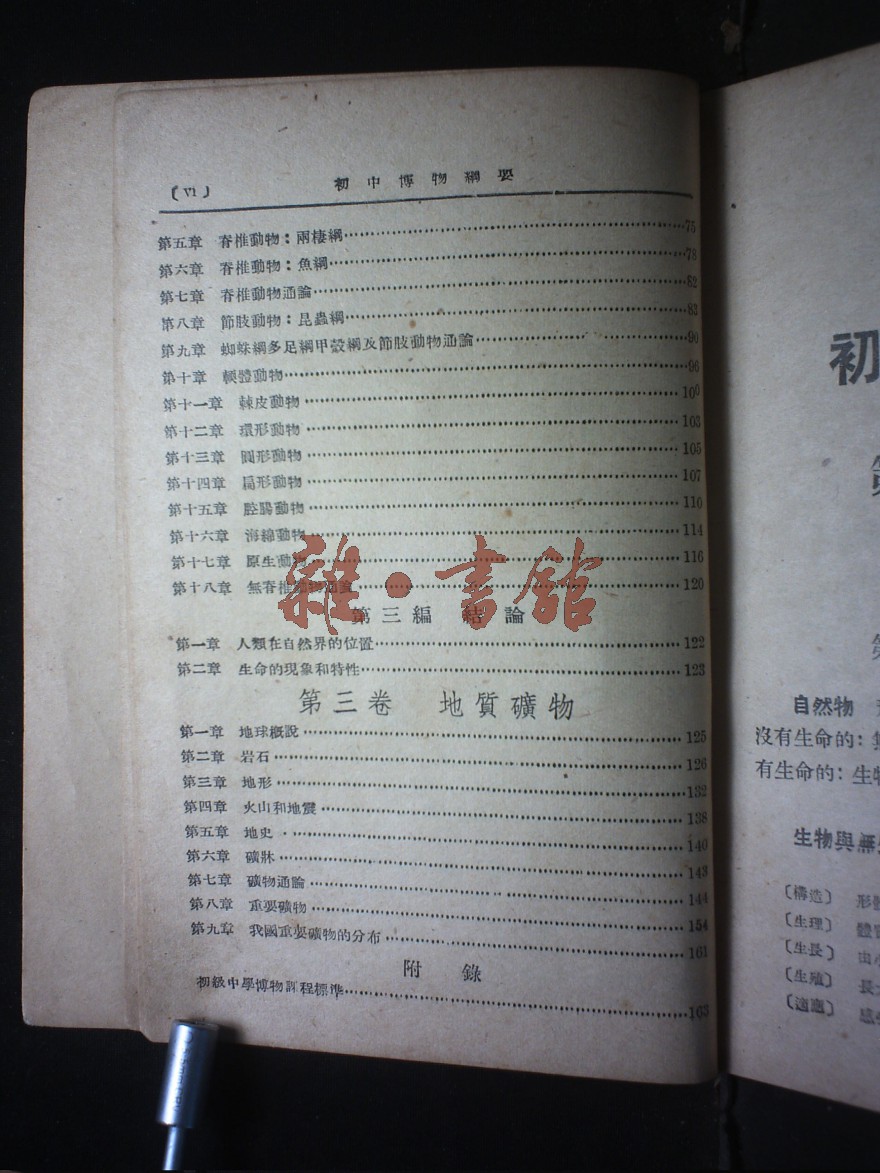 (VI) 初中博物綱要
第五章 脊椎動物：兩棲綱 75
第六章 脊椎動物：魚綱 78
第七章 脊椎動物通論 82
第八章 節肢動物：昆蟲綱 83
第九章 蜘蛛綱多足綱甲殼綱及節肢動物通論 90
第十章 軟體動物 96
第十一章 棘皮動物 100
第十二章 環形動物 103
第十三章 圓形動物 105
第十四章 扁形動物 107
第十五章 腔腸動物 110
第十六章 海綿動物 114
第十七章 原生動物 116
第十八章 無脊椎動物通論 120
雜·書館
第三編 結論
第一章 人類在自然界的位置 122
第二章 生命的現象和特性 123
第三卷 地質礦物
第一章 地球概說 125
第二章 岩石 126
第三章 地形 132
第四章 火山和地震 138
第五章 地史 140
第六章 礦牀 143
第七章 礦物通論 144
第八章 重要礦物 154
第九章 我國重要礦物的分布 161
附錄
初級中學博物課程標準 163
初
自然物
沒有生命的：
有生命的：生物
生物與無
〔構造〕 形
〔生理〕 體
〔生長〕 由小
〔生殖〕 長
〔適應〕